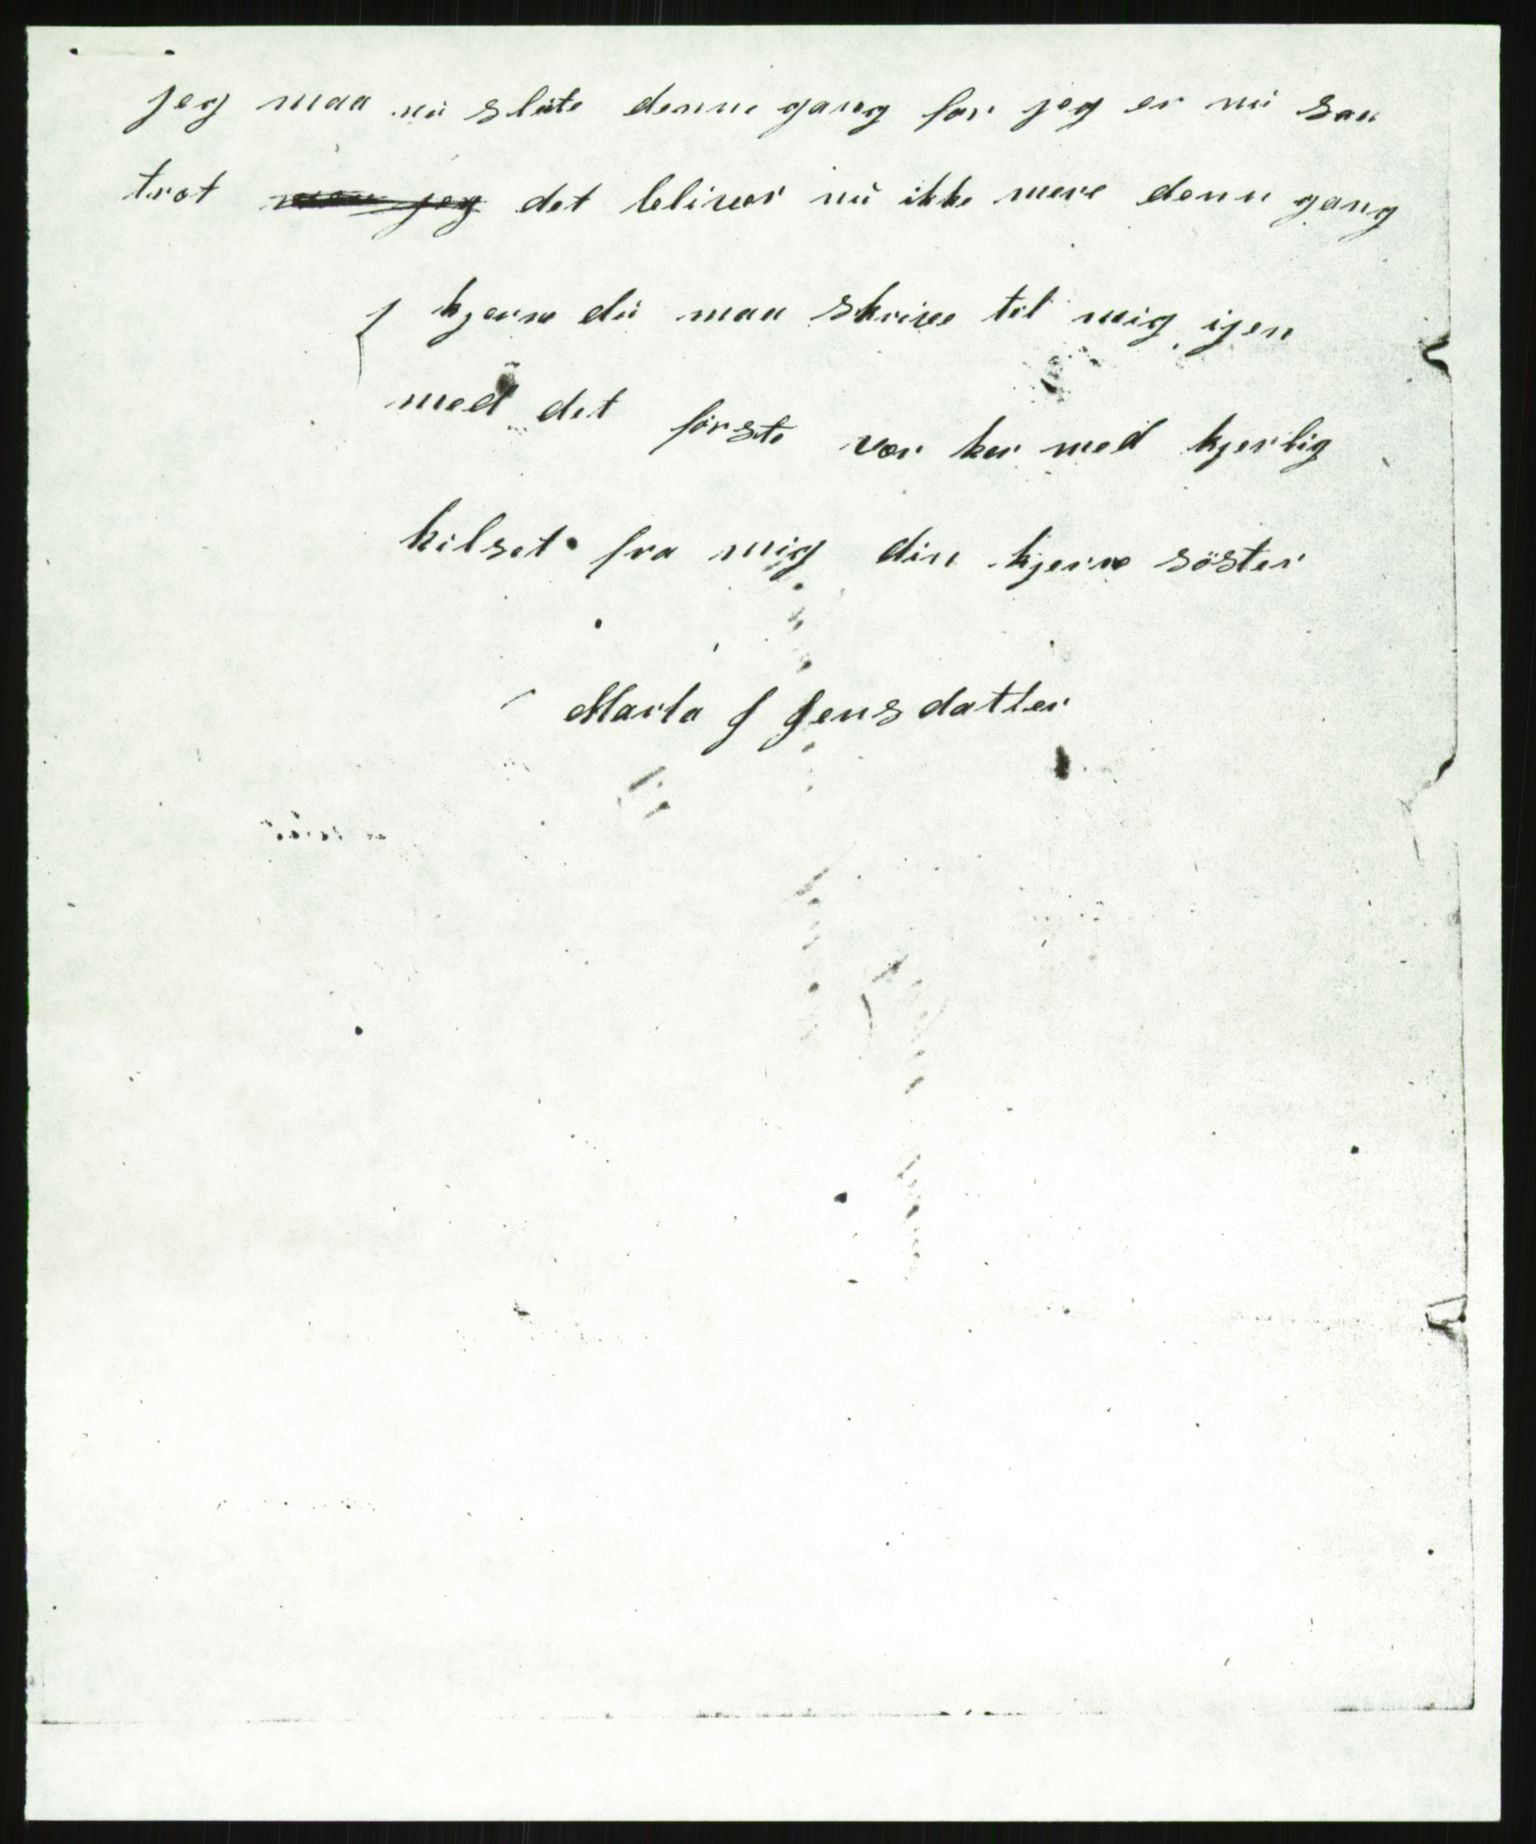 jeg maa nú slúte denne gang for jeg er nú saa
trot maa jeg det bliver nú ikke mere denn gang
kjerre dú maa skrive til mig igen
med det förste vor her med kjerlig
hilset fra mig din kjerre söster
Marta J Jensdatter